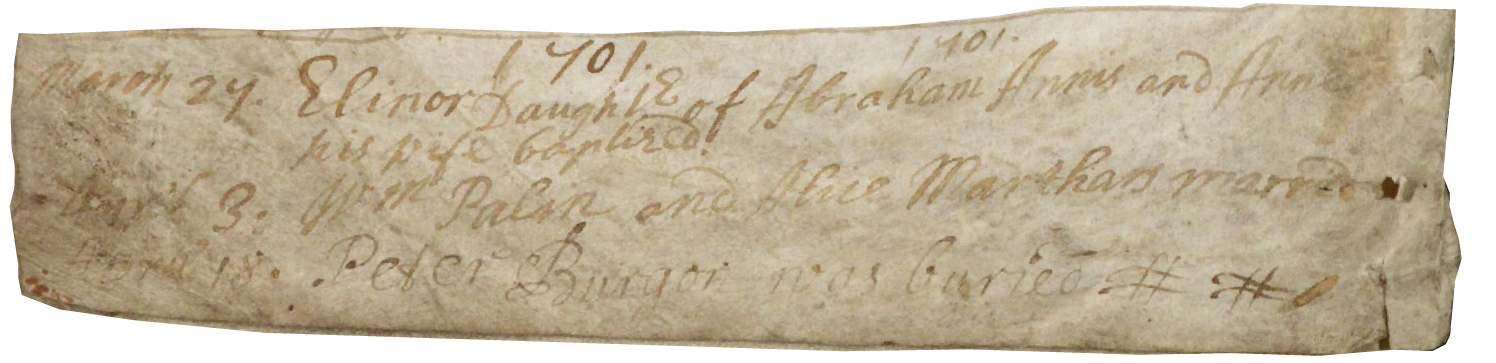 1701. 1701.
March 27. Elinor Daughte of Abraham Annis and Anne
his wife baptized
April 3. Wm Palin and Alice Marthars married
April 18. Peter Burgon was buried # #